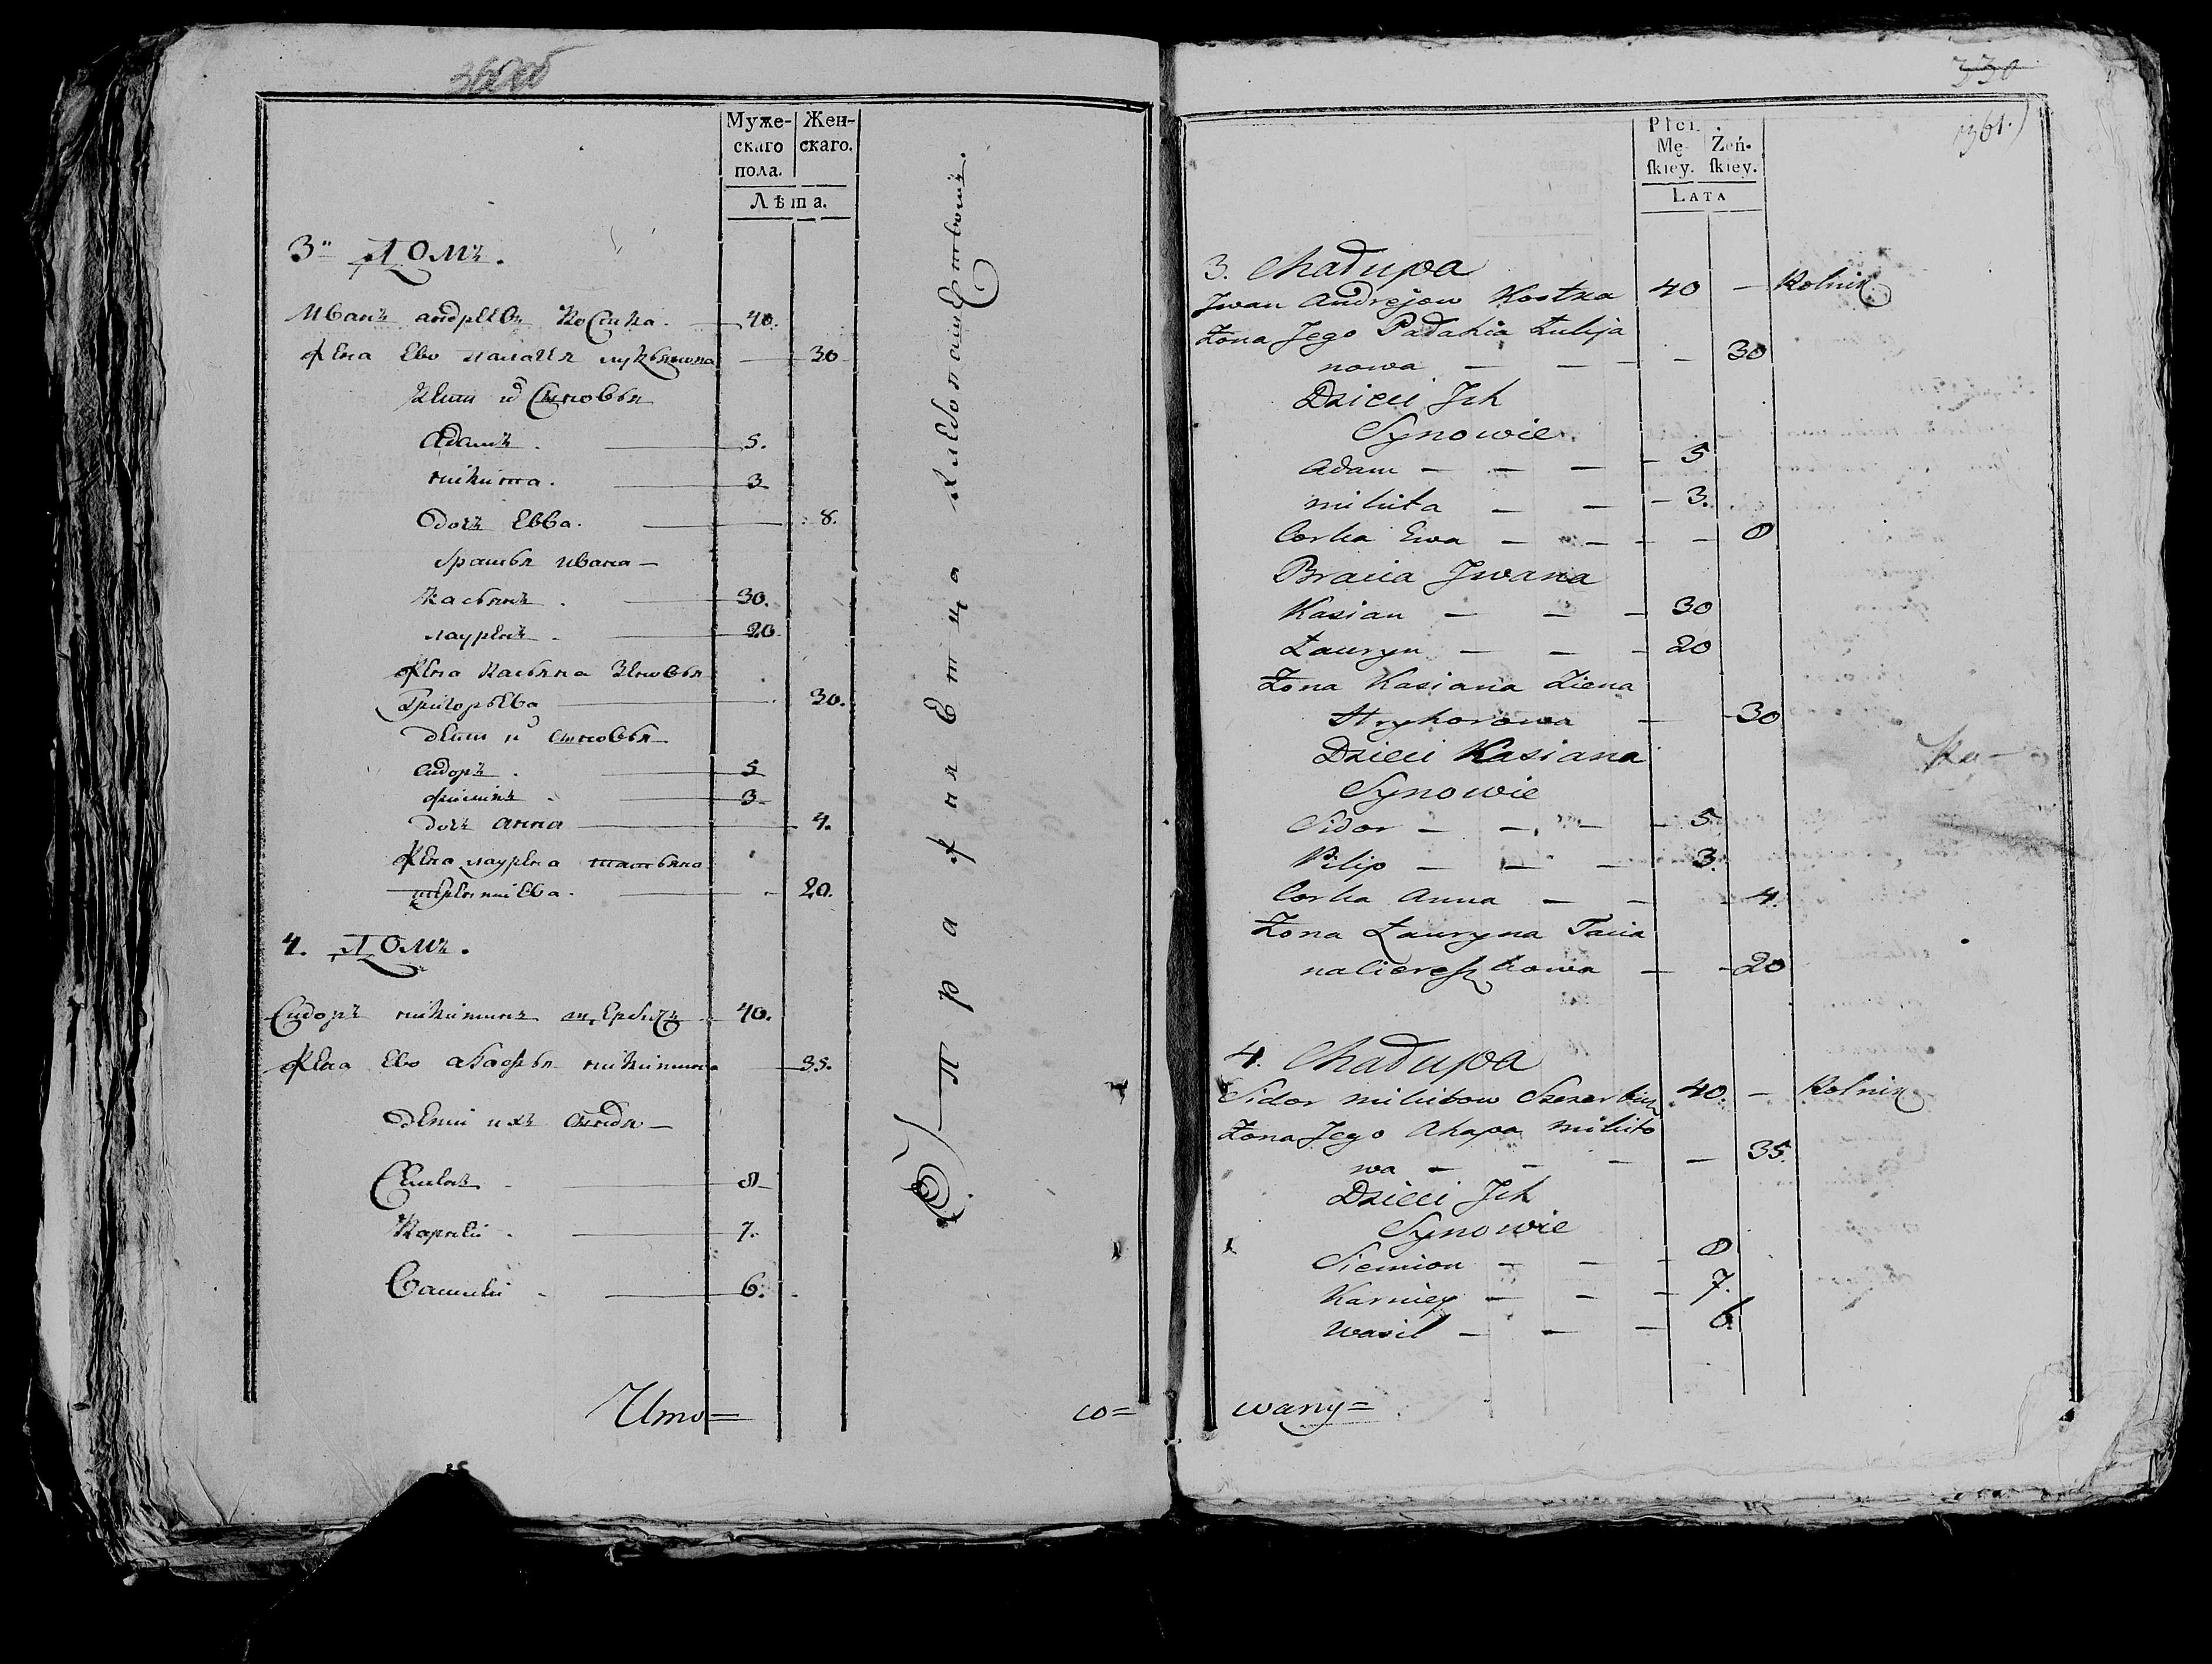 Муже-
скаго
пола.
Жен-
скаго.
Лѣта.
3. Домъ.
Иванъ андреевъ Костка. 40.
Жена Ево палагея лукьянова 30
Дети их Сыновья
Адамъ. 5.
никита. 3
Дочь Евва. 8.
братья ивана
касьянъ. 30.
лауренъ. 20
Жена касьяна Зеновья
Григорьева 30.
дети их сыновья
сидоръ. 5
филипъ. 3.
дочь анна 4.
Жена лаурена татьяна
терентиева. 20.
4. Домъ.
Сидоръ никитинъ 40.
Жена Ево агафья никитина 35.
дети ихъ
Семенъ 8
Карней. 7.
Василей 6.
Ито=
пражняетца хлебопашеством.
со=
330
361.
Płci.
Mę-
ſkiey.
Żeń-
ſkiey.
LATA
3. Chałupa
Jwan Andrejow Kostka 40 — Rolnik
Żona Jego Pałahia Łukja
nowa — — — — 30
Dzieci Jch
Synowie
Adam — — — — 5
mikita — — — 3.
Corka Ewa — — — — 8
Bracia Jwana
Kasian — — — 30
Łauryn — — — 20
Żona Kasiana Ziena
Hryhorowa — — 30
Dzieci Kasiana
Synowie
Sidor — — — — 5
Pilip — — — 3.
Corka Anna — — — 4.
Żona Łauryna Tacia
na Cereszkowa — — 20
4. Chałupa
Sidor mikitow 40. — Rolnik
Żona Jego Ahapa mikito
wa — — — — 35.
Dzieci Jch
Synowie
Siemion — — — 8
Karniey — — — 7.
Wasil — — — 6.
wany=